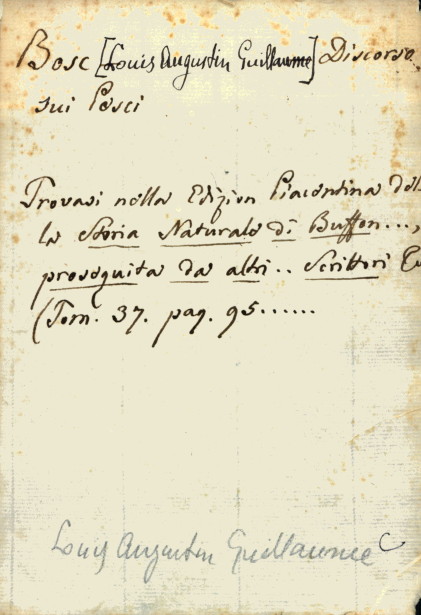 Bosc [Louis Augustin Guillaume] Discorso
sui Pesci
Trovasi nella Edizion Piacentina del
la Storia Naturale di Buffon...,
proseguita da altri.. Scrittori
(Tom. 37. pag. 95......
Louis Augustin Guillaume